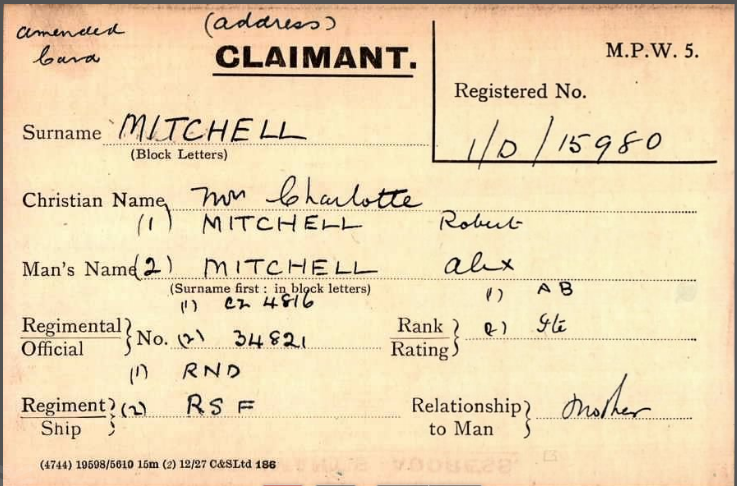 amended (address)
Card CLAIMANT. M.P.W. 5.
Registered No.
Surname MITCHELL 1/D/15980
(Block Letters)
Christian Name Mrs Charlotte
(1) MITCHELL Robert
Man's Name (2) MITCHELL Alex
(Surname first : in block letters)
(1) CZ 4816 (1) AB
Regimental Official } No. (2) 34821 Rank Rating } (2) Pte
(1) RND
Regiment Ship } (2) RSF Relationship to Man } Mother
(4744) 19598/5610 15m (2) 12/27 C&SLtd 186